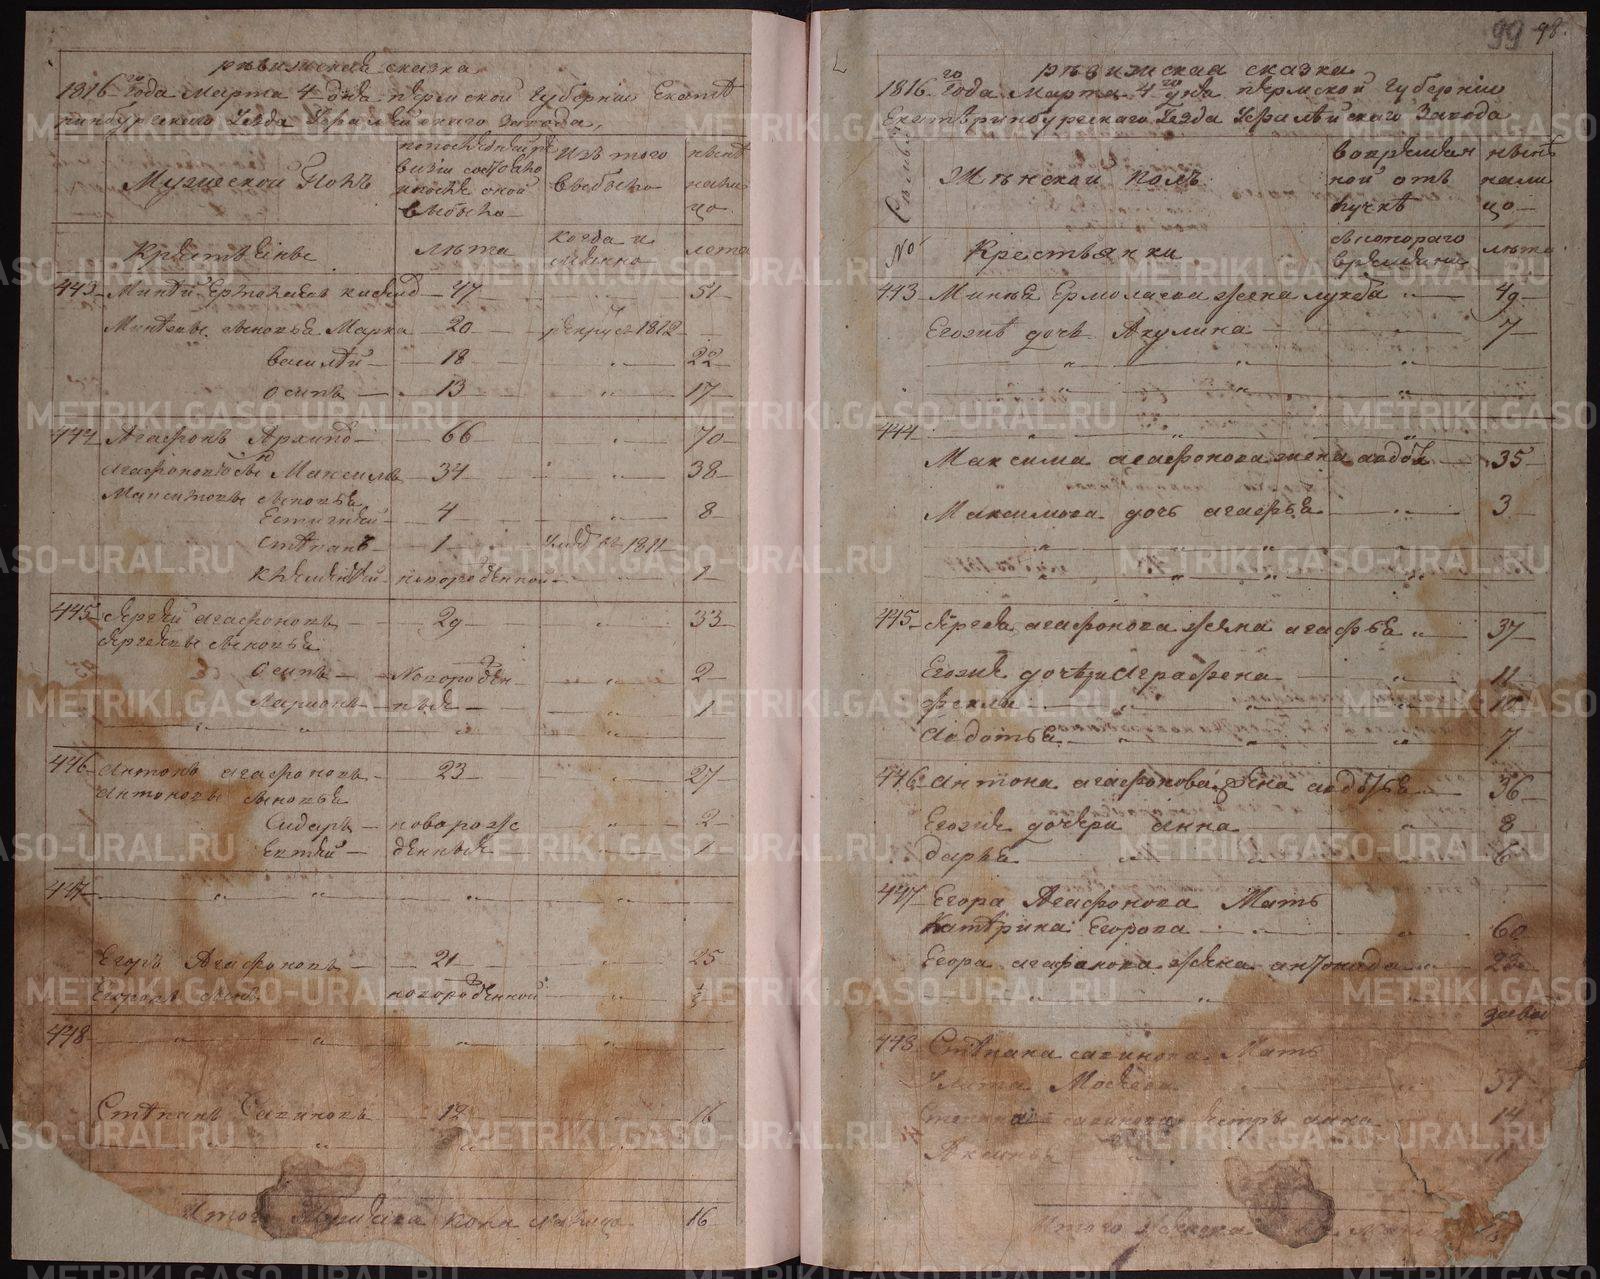 99 98.
ревижская сказка
1816го года Марта 4 дня пермской Губернии Екатерин
бургского Уезда Уфалейского Завода
Мужеской Полъ
по последней ре
визи состояло
и после оной
выбыло
Изъ того
выбыло
ныне
нали
цо
Крестьяне
лета
когда и
именно
лета
443 Миней Ермолаевъ 47 51
Минеевы сыновья Марка 20 рекрут 1812
Василей 18 22
Осипъ 13 17
444 Агафонъ Архипо 66 70
Агафоновъ сынъ Максимъ 34 38
Максимовы сыновья
Естигней 4 8
Степанъ 1 1811
Клементей новорожденной 1
445 Сергей Агафоновъ 29 33
Сергеевы сыновья
Осипъ Новорожден 2
Ларионъ ныя 1
446 Антонъ Агафоновъ 23 27
Антоновы сыновья
Сидаръ новорож 2
Ектей денныя 1
447
Егоръ Агафоновъ 21 25
Егоровъ сынъ новорожденной ½
448
Степанъ Савиновъ 12 16
Итого Мужеска пола налицо 16
ревижская сказка
1816го года Марта 4го дня пермской Губернии
Екатеринбургского Уезда Уфалейскаго Завода
Женской полъ
во времян
ной отъ
лучке
ныне
нали
цо
№
Крестьянки
съ котораго
времяни
лета
443 Минея Ермолаева жена лукея 49
Егожъ дочь Акулина 7
444
Максима Агафонова жена авдоть 35
Максимова дочь агафья 3
445 Сергея агафонова жена агафья 37
Егожъ дочери Аграфена 11
фекла 10
Авдотья 7
446 Антона агафонова жена авдотья 36
Егожъ дочери анна 8
дарья 6
447 Егора Агафонова Мать
Катерина Егорова 60
Егора агафонова жена антонида 23
448 Степана савинова Мать
Улита Мосеева 51
Степана савинова сестры анна 14
Аксинья
Итого женска